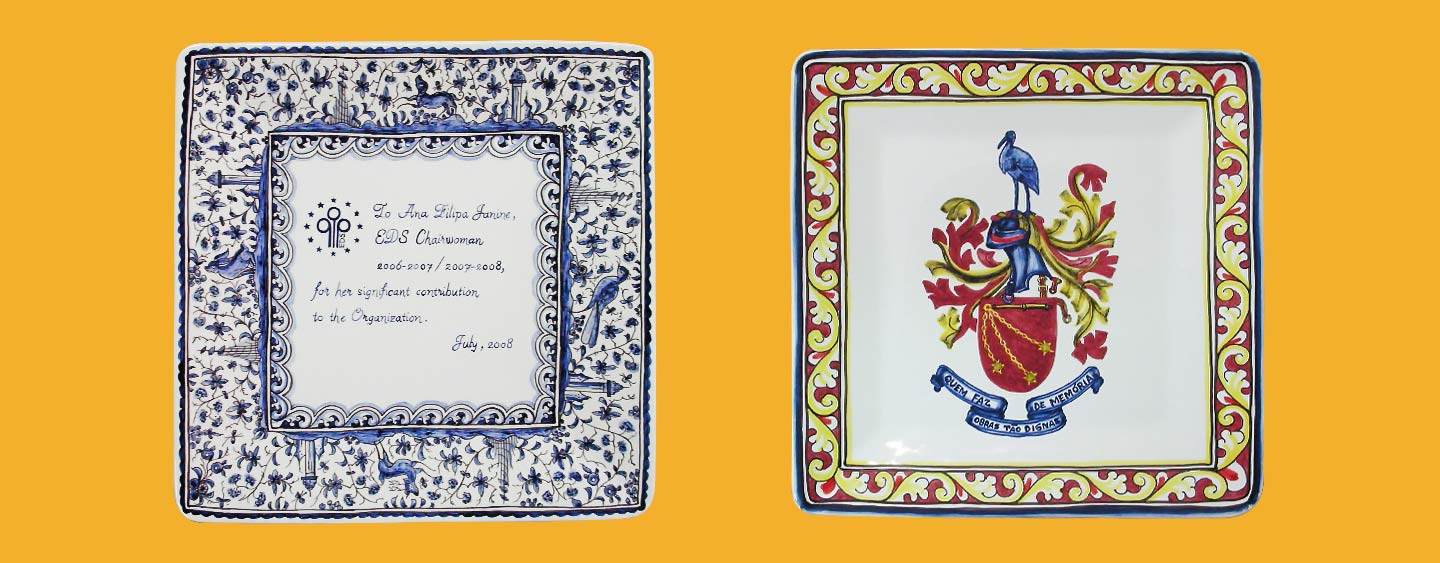 To Ana Filipa Janine,
EDS Chairwoman
2006-2007 / 2007-2008,
for her significant contribution
to the Organization.
July, 2008
EDS
QUEM FAZ
OBRAS TAO DIGNAS
DE MEMÓRIA